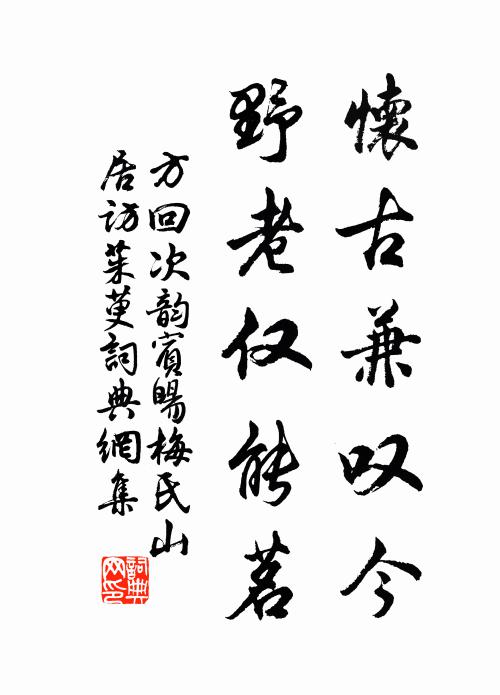 懷古兼叹今
野老仅能茗
方回次韵賓暘梅氏山
居访茱萸詞典網集
詞典
网